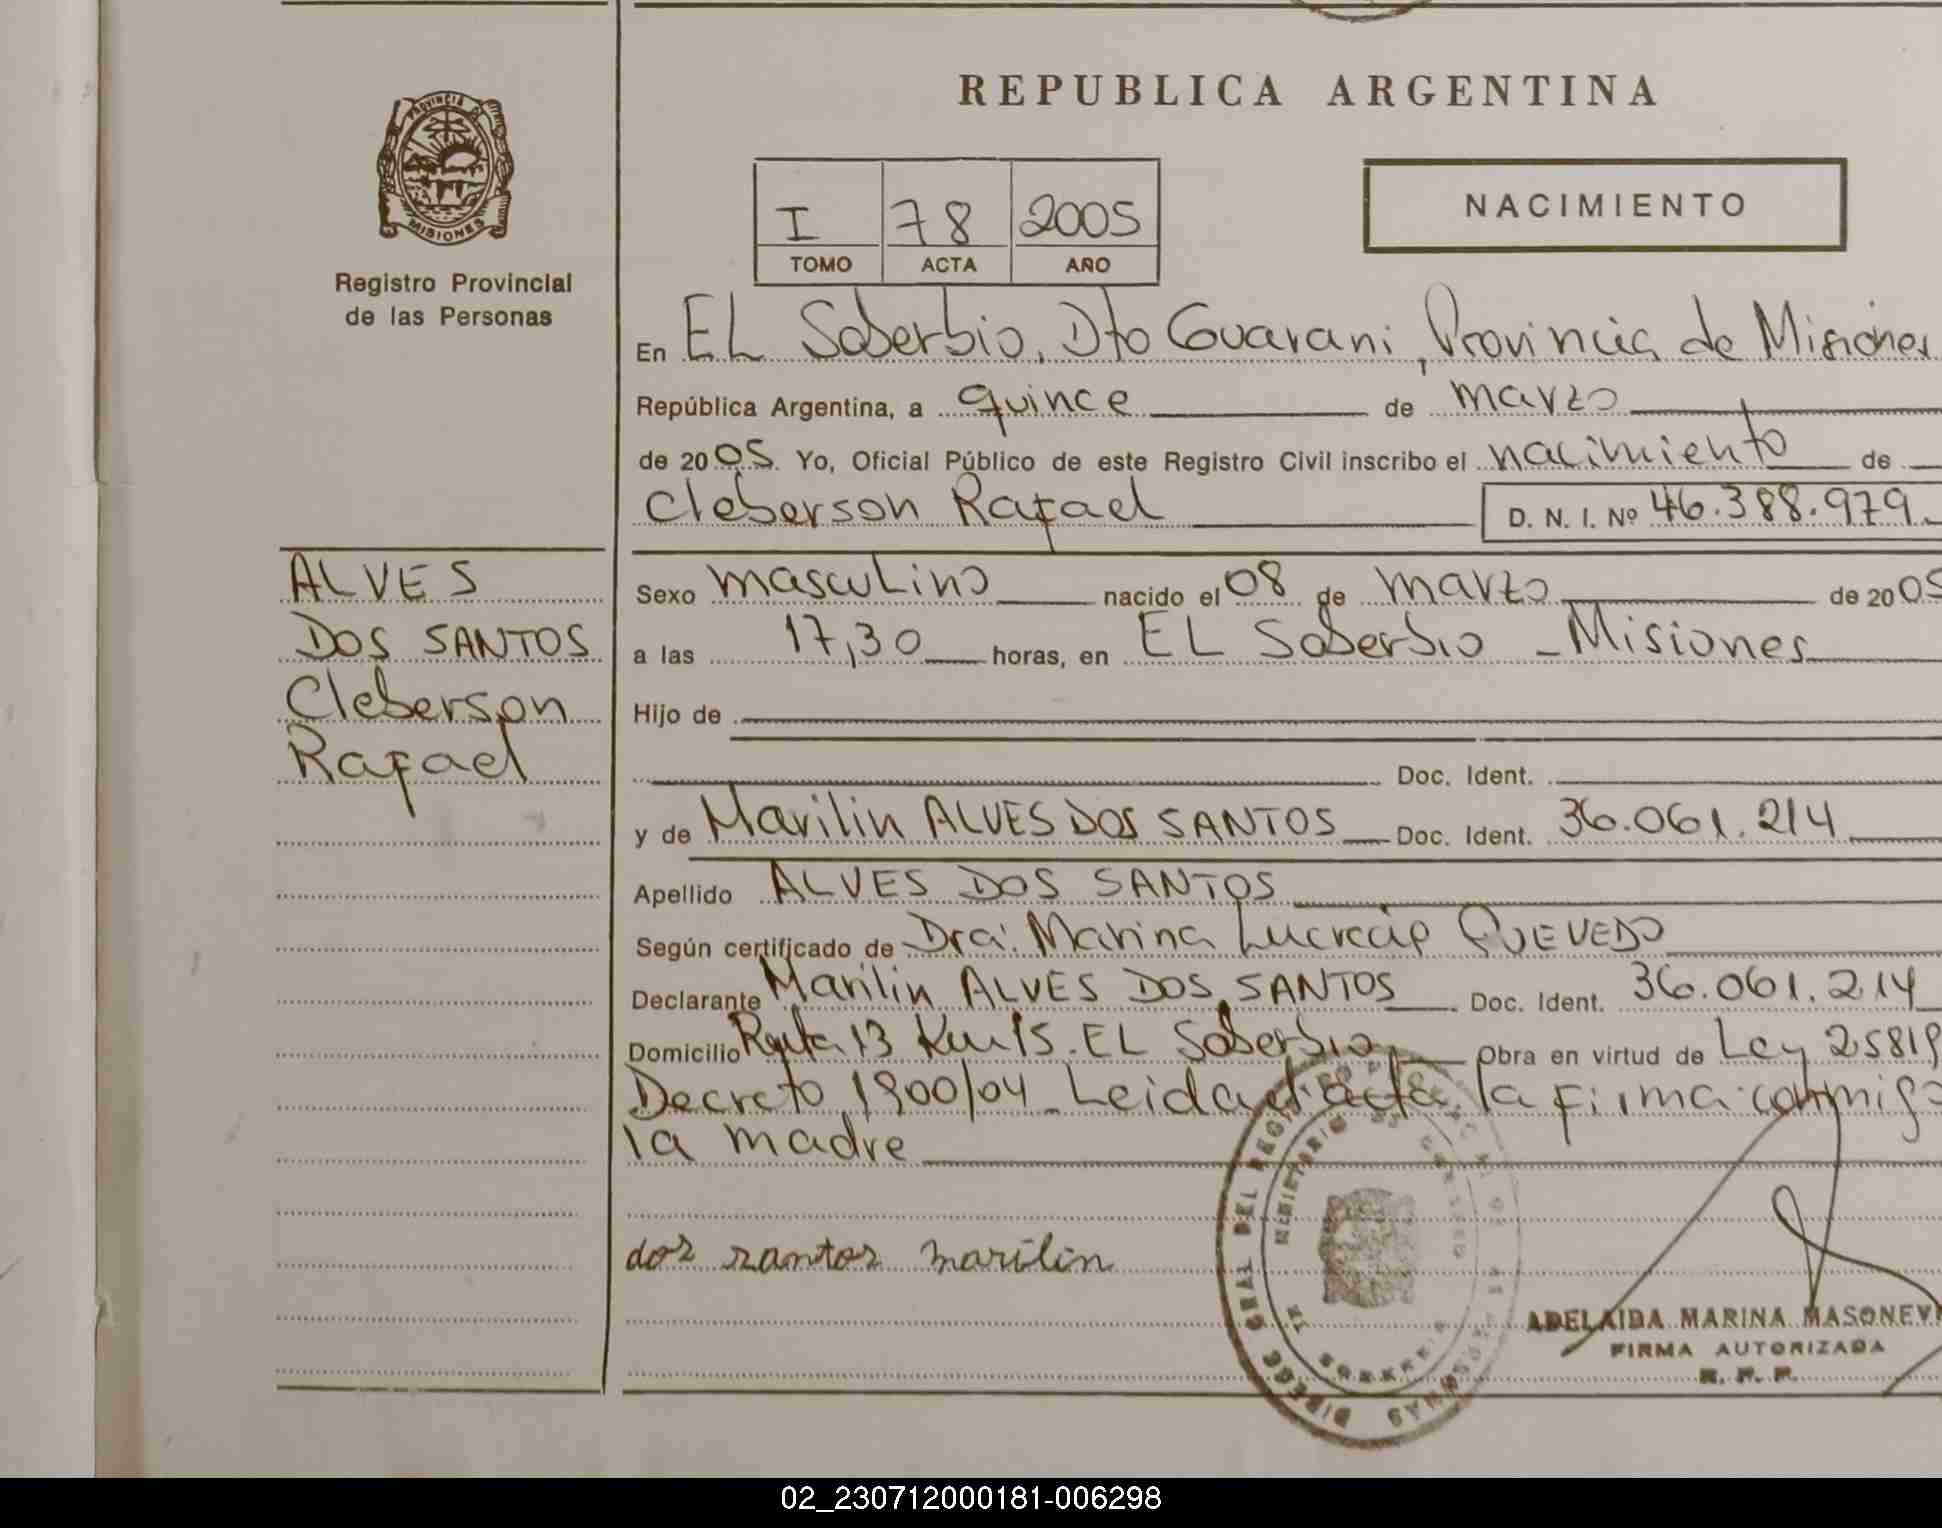 REPUBLICA ARGENTINA
PROVINCIA DE
MISIONES
Registro Provincial
de las Personas
I 78 2005
TOMO ACTA AÑO
NACIMIENTO
En EL Soberbio, Dto Guarani, Provincia de Misiones
República Argentina, a quince de marzo
de 2005. Yo, Oficial Público de este Registro Civil inscribo el nacimiento de
Cleberson Rafael D. N. I. Nº 46.388.979
ALVES
DOS SANTOS
Cleberson
Rafael
Sexo masculino nacido el 08 de marzo de 2005
a las 17,30 horas, en EL Soberbio - Misiones
Hijo de
Doc. Ident.
y de Marilin ALVES DOS SANTOS Doc. Ident. 36.061.214
Apellido ALVES DOS SANTOS
Según certificado de Dra. Marina QUEVEDO
Declarante Marilin ALVES DOS SANTOS Doc. Ident. 36.061.214
Domicilio Ruta 13 Km 15. EL Soberbio Obra en virtud de Ley 25819
Decreto 1900/04 Leida el acta la firma conmigo
la madre
dos santos marilin
ADELAIDA MARINA MASONEV
FIRMA AUTORIZADA
R. P. P.
02_230712000181-006298